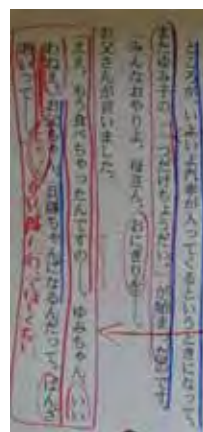 ところが、いよいよ汽車が入ってくるというときになって、
またゆみ子の「一つだけちょうだい。」が始まったのです。
「みんなおやりよ、母さん。おにぎりを――。」
お父さんが言いました。
「ええ、もう食べちゃったんですの――。ゆみちゃん、いい
わねえ。お父ちゃん、兵隊ちゃんになるんだって。ばんざ
あいって――。」